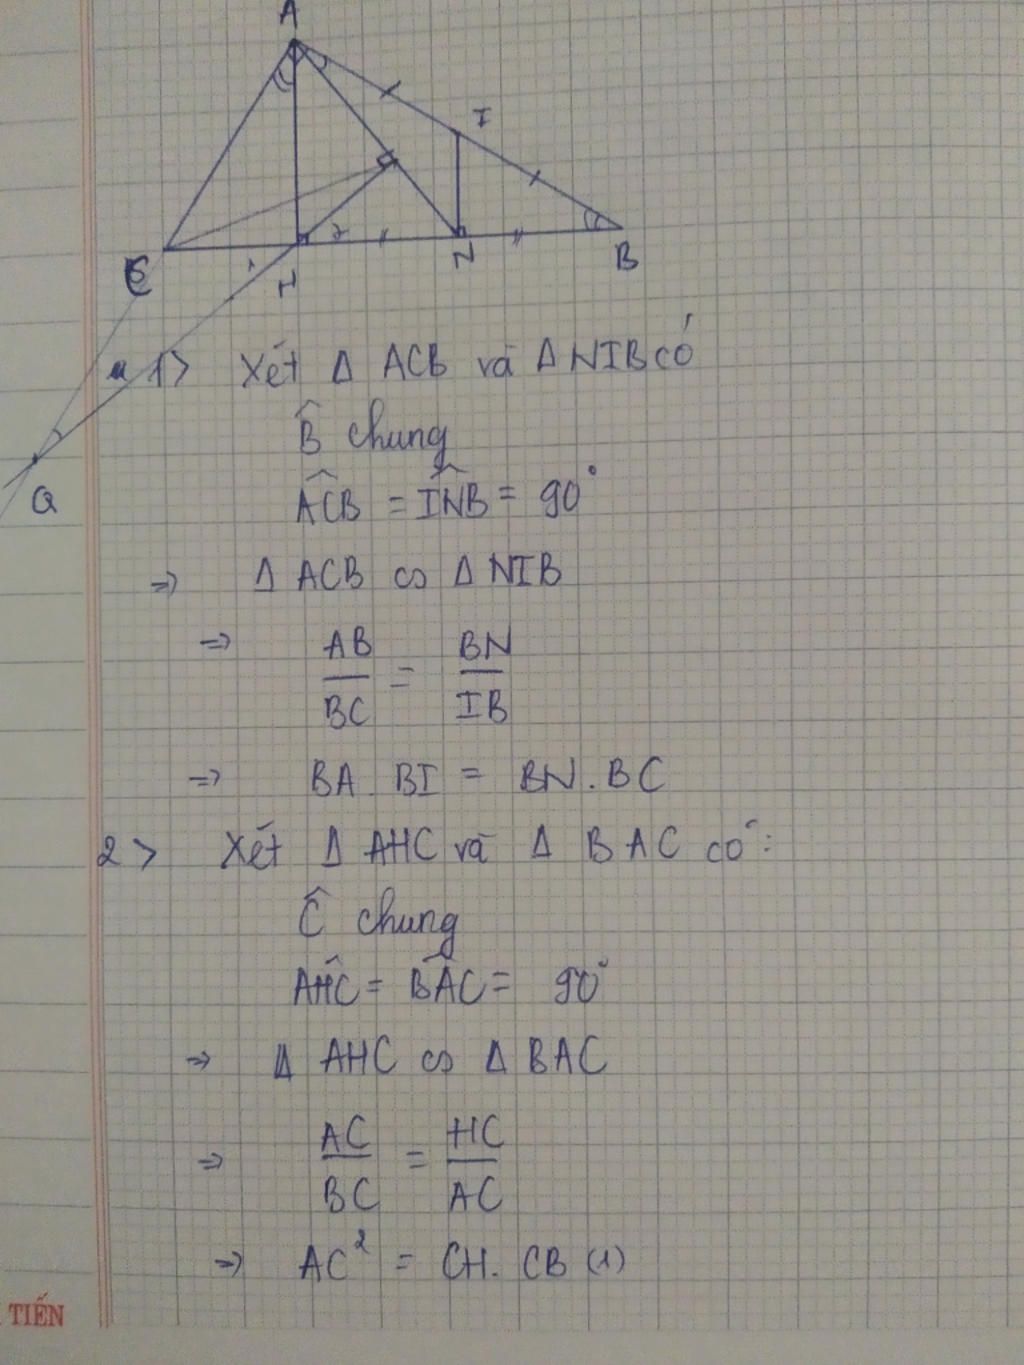 A
I
C
H
N
B
1> Xét Δ ACB và Δ NIB có
B̂ chung
ACB̂ = INB̂ = 90°
Q
=> Δ ACB ∽ Δ NIB
=> AB/BC = BN/IB
=> BA . BI = BN . BC
2> Xét Δ AHC và Δ BAC có :
Ĉ chung
AĤC = BÂC = 90°
=> Δ AHC ∽ Δ BAC
=> AC/BC = HC/AC
=> AC² = CH . CB (1)
TIẾN